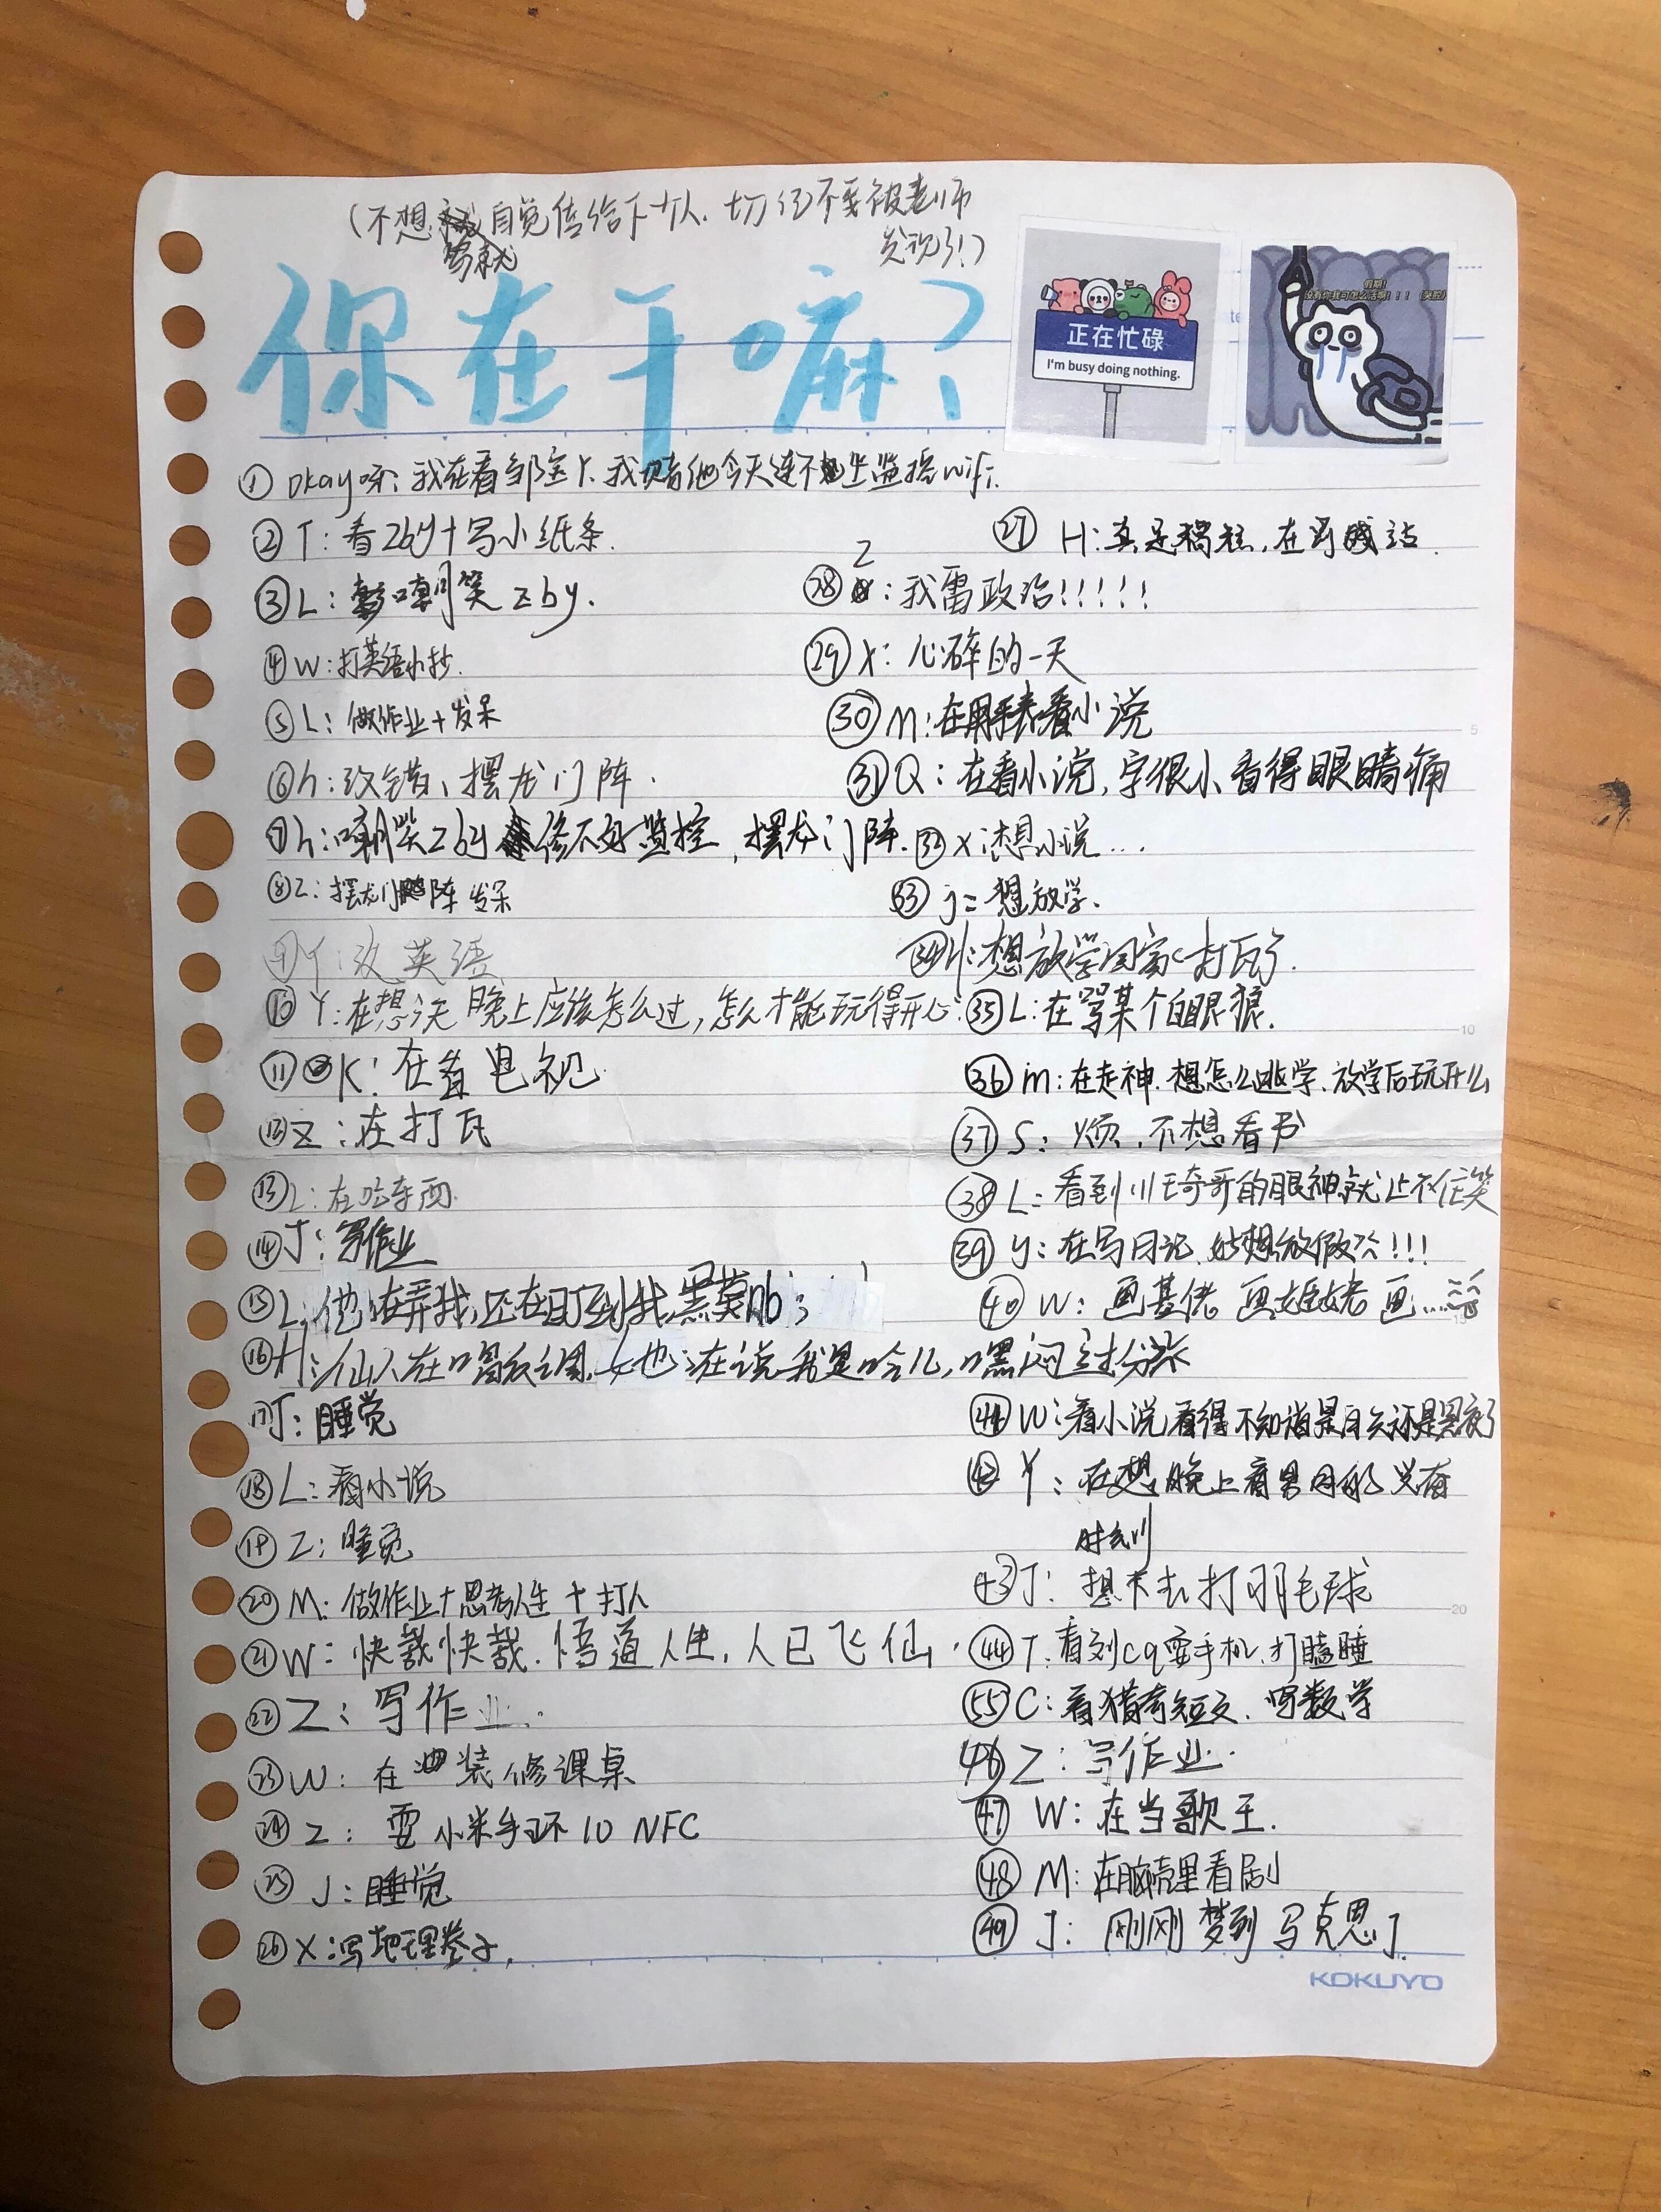 (不想写就自觉传给下一个人.切记不要被老师
发现了!)
你在干嘛?
正在忙碌
I'm busy doing nothing.
假期!
没有你我可怎么活啊!!!(哭腔)
① okay呀: 我在看邹宝 我赌他今天连不上监控wifi.
② T: 看zby+写小纸条.
③ L: 嘲笑zby.
④ W: 打英语小抄.
⑤ L: 做作业+发呆
⑥ h: 改错、摆龙门阵.
⑦ h: 嘲笑zby修不好监控,摆龙门阵.
⑧ Z: 摆龙门阵 发呆
⑨ Y: 改英语
⑩ Y: 在想今天晚上应该怎么过,怎么才能玩得开心.
⑪ K: 在看电视
⑫ Z: 在打瓦
⑬ L: 在吃东西.
⑭ J: 写作业
⑮ L: 他在弄我,还在盯到我,黑莫nb;
⑯ H: 仙人在唱反调,他在说我是哈儿,嘿闷过分涨
17 J: 睡觉
⑱ L: 看小说
⑲ Z: 睡觉
⑳ M: 做作业+思考人生+打人
㉑ W: 快哉快哉.悟道人生,人已飞仙.
㉒ Z: 写作业..
㉓ W: 在装修课桌
㉔ Z: 耍小米手环10 NFC
㉕ J: 睡觉
㉖ X: 写地理卷子.
㉗ H: 真是糟糕,在写
㉘ Z: 我雷政治!!!!!
㉙ X: 心碎的一天
㉚ M: 在用手表看小说
㉛ Q: 在看小说,字很小看得眼睛痛
㉜ X: 想小说...
㉝ j: 想放学.
㉞ H: 想放学回家打瓦了.
㉟ L: 在写某个白眼狼.
㊱ m: 在走神.想怎么逃学.放学后玩什么
㊲ S: 烦,不想看书
㊳ L: 看到川崎奇哥的眼神就止不住笑
㊴ y: 在写日记,好想放假!!!
㊵ W: 画基佬 画姬佬 画......
㊶ W: 看小说看得不知道是白天还是黑夜了
㊷ Y: 在想晚上看男团的兴奋
时刻
㊸ J: 想下去打羽毛球
㊹ T: 看到cq耍手机,打瞌睡
55 C: 看猎奇短文.写数学
46 Z: 写作业..
㊼ W: 在当歌王.
㊽ M: 在脑壳里看剧
㊾ J: 刚刚梦到马克思了.
KOKUYO